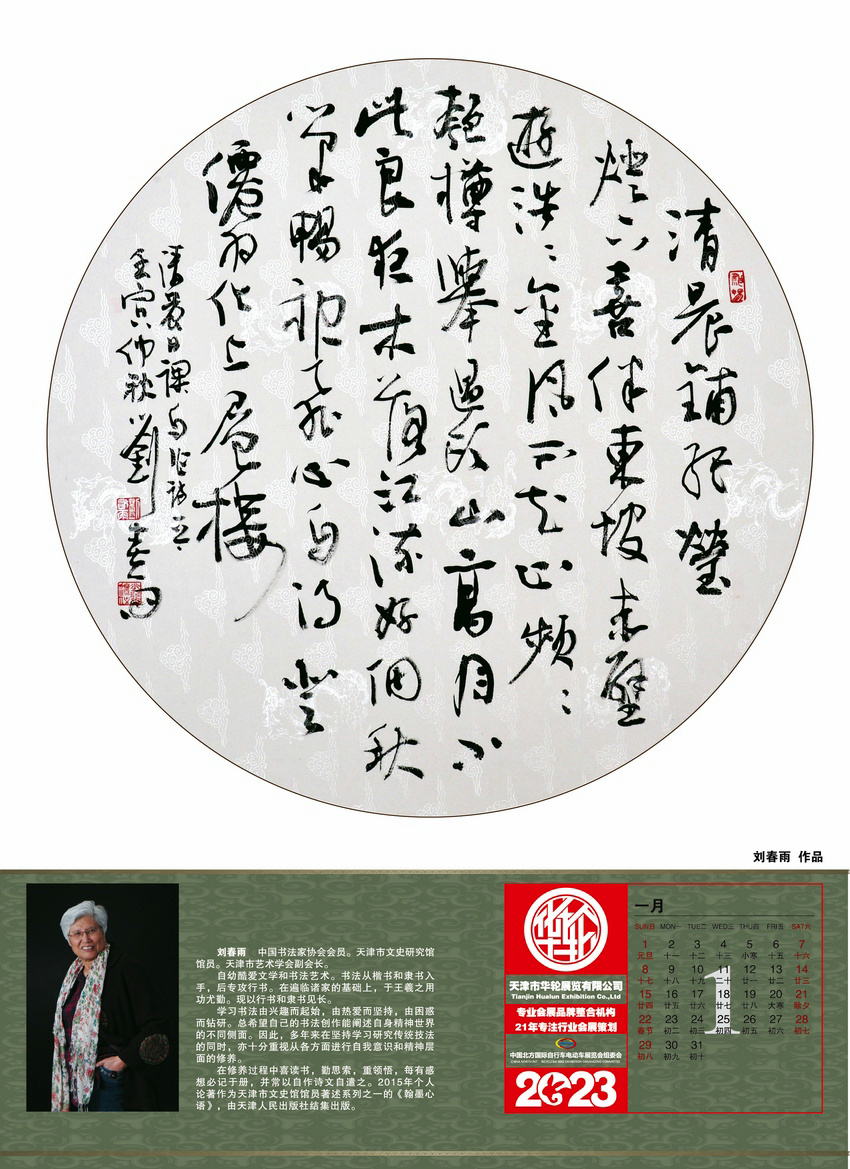 清晨鋪紙瑩
燈下喜伴東坡赤壁
遊浩浩金風
匏樽舉 山高月小
此良 木落江流好個秋
暢神飛心自得 登
僊羽化上層樓
清晨日課自作詩
壬寅仲秋 劉春雨
刘春雨 作品
刘春雨 中国书法家协会会员。天津市文史研究馆
馆员。天津市艺术学会副会长。
自幼酷爱文学和书法艺术。书法从楷书和隶书入
手，后专攻行书。在遍临诸家的基础上，于王羲之用
功尤勤。现以行书和隶书见长。
学习书法由兴趣而起始，由热爱而坚持，由困惑
而钻研。总希望自己的书法创作能阐述自身精神世界
的不同侧面。因此，多年来在坚持学习研究传统技法
的同时，亦十分重视从各方面进行自我意识和精神层
面的修养。
在修养过程中喜读书，勤思索，重领悟，每有感
想必记于册，并常以自作诗文自遣之。2015年个人
论著作为天津市文史馆馆员著述系列之一的《翰墨心
语》，由天津人民出版社结集出版。
华轮
天津市华轮展览有限公司
Tianjin Hualun Exhibition Co.,Ltd
专业会展品牌整合机构
21年专注行业会展策划
中国北方国际自行车电动车展览会组委会
2023
一月
1
SUN日 MON一 TUE二 WED三 THU四 FRI五 SAT六
1 2 3 4 5 6 7
元旦 十一 十二 十三 小寒 十五 十六
8 9 10 11 12 13 14
十七 十八 十九 二十 廿一 廿二 廿三
15 16 17 18 19 20 21
廿四 廿五 廿六 廿七 廿八 大寒 除夕
22 23 24 25 26 27 28
春节 初二 初三 初四 初五 初六 初七
29 30 31
初八 初九 初十